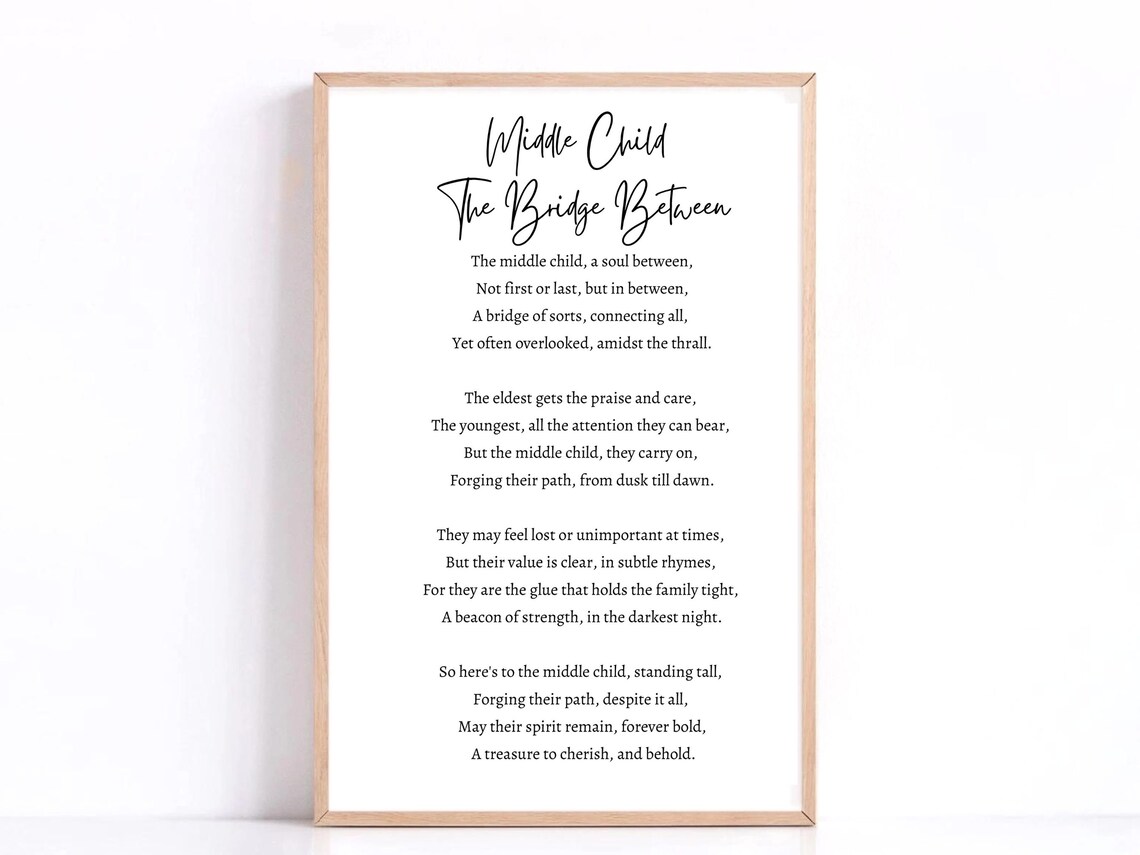 Middle Child
The Bridge Between
The middle child, a soul between,
Not first or last, but in between,
A bridge of sorts, connecting all,
Yet often overlooked, amidst the thrall.
The eldest gets the praise and care,
The youngest, all the attention they can bear,
But the middle child, they carry on,
Forging their path, from dusk till dawn.
They may feel lost or unimportant at times,
But their value is clear, in subtle rhymes,
For they are the glue that holds the family tight,
A beacon of strength, in the darkest night.
So here's to the middle child, standing tall,
Forging their path, despite it all,
May their spirit remain, forever bold,
A treasure to cherish, and behold.